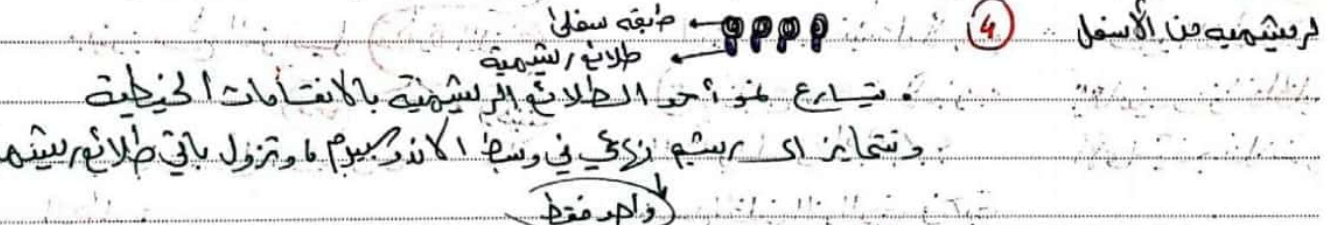 ④ الرشيمية من الأسفل
طبقة سفلى
طلائع رشيمية
• يتسارع نمو أحد الطلائع الرشيمية بالانقسامات الخيطية
وتتمايز الى رشيم نهائي في وسط الاندوسبيرم، وتزول باقي طلائع رشيم
واحد فقط